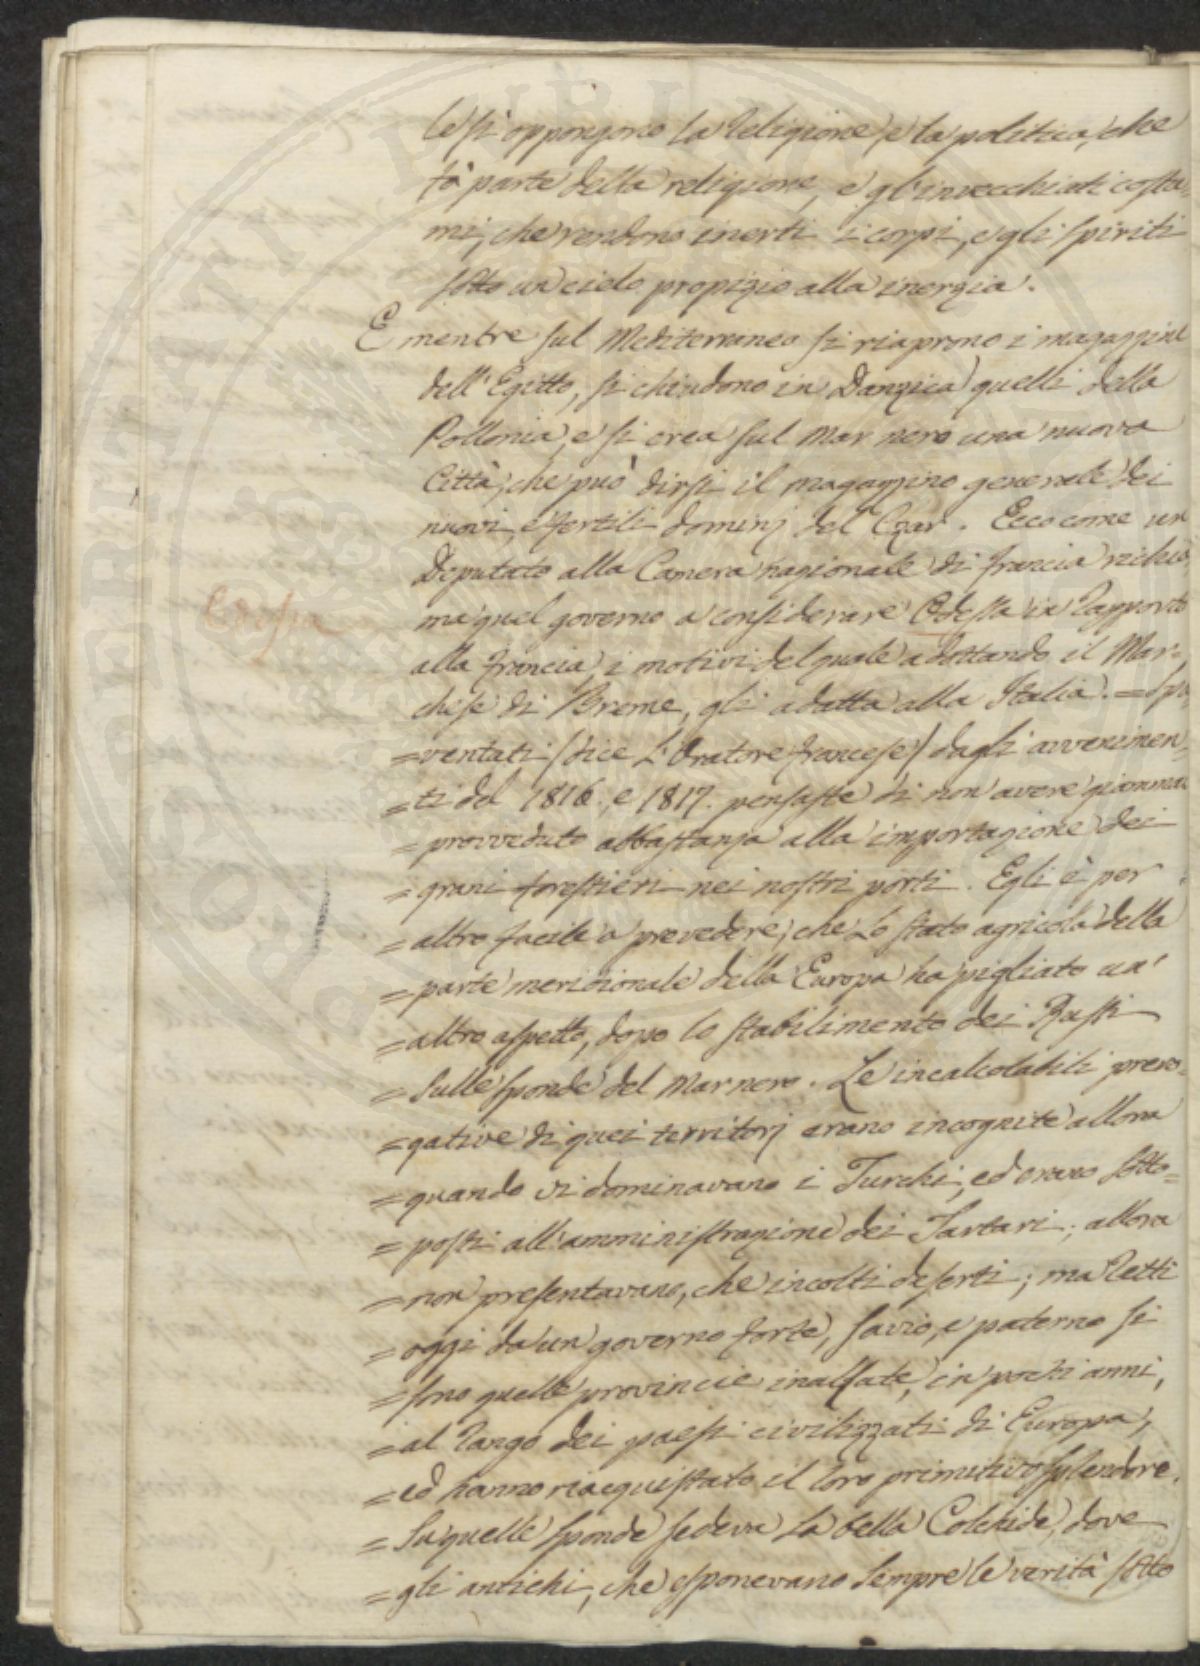 le si oppongono la Religione, e la politica, che
fà parte della religione, e gl'invecchiati costu=
mi, che rendono inerti i corpi, e gli spiriti
sotto un cielo propizio alla inerzia.
E mentre sul Mediterraneo si riaprono i magazzini
dell'Egitto, si chiudono in Danzica quelli della
Pollonia, e si crea sul Mar nero una nuova
Città, che può dirsi il magazzino generale dei
nuovi, e fertili dominj del Czar. Ecco come un
Deputato alla Camera nazionale di Francia richia
ma quel governo a considerare Odessa in Rapporto
alla Francia, i motivi del quale adottando il Mar=
chese di Breme, gli adatta alla Italia. = Spa
= ventati (dice l'Oratore francese) dagli avvenimen=
= ti del 1816. e 1817. pensaste di non avere giammai
= provveduto abbastanza alla importazione dei
= grani forestieri nei nostri porti. Egli è per
= altro facile a prevedere, che lo stato agricola della
= parte meridionale della Europa ha pigliato un'
= altro aspetto, dopo lo stabilimento dei Russi
= Sulle sponde del Mar nero. Le incalcolabili prero=
= gative di quei territorj erano incognite allora
= quando vi dominavano i Turchi, ed erano sotto=
= posti all'amministrazione dei Tartari; allora
= non presentavano, che incolti deserti; ma Retti
= oggi da un governo forte, savio, e paterno si
= sono quelle provincie inalzate, in pochi anni,
= al Rango dei paesi civilizzati di Europa,
= ed hanno riacquistato il loro primitivo splendore.
= Su quelle sponde sedeva la bella Colchide, dove
= gli antichi, che esponevano sempre le verità sotto
PROSPERITATI PUBLICAE